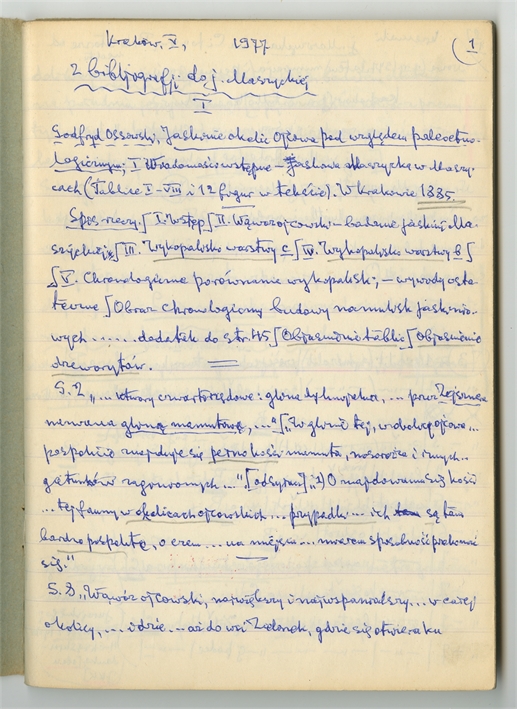 Kraków, X, 1977
1
Z bibliografji do j. Maszyckiej
I
Godfryd Ossowski, Jaskinie okolic Ojcowa pod względem paleoetno-
logicznym; I Wiadomości wstępne Jaskinia Maszycka w Maszy-
cach (Tablice I-VIII i 12 figur w tekście). W Krakowie 1885.
Spis rzeczy. [I. Wstęp [II. Wąwóz ojcowski – badanie jaskini Ma-
szyckiej [III. Wykopalisko warstwy C [IV. Wykopalisko warstwy b [
[V. Chronologiczne porównanie wykopalisk; – wywody osta-
teczne [Obraz chronologiczny budowy namulisk jaskinio-
wych ...... dodatek do str. 45 [Objaśnienie tablic [Objaśnienie
drzeworytów.
S. 2 „... utwory czwartorzędowe: glina dyluwjalna, ... przez Zejsznera
nazwana gliną mamutową, ..." [„W glinie tej, w okolicy Ojcowa ...
pospolicie znajduje się pełno kości mamuta, nosorożca i innych ...
gatunków zaginionych ..." [odsyłacz] „1) O znajdowaniu się kości
... tej fauny w okolicach ojcowskich ... przypadki ... ich są tam
bardzo pospolite, o czem ... na miejscu ... miałem sposobność przekonać
się."
S. 8 „Wąwóz ojcowski, największy i najwspanialszy ... w całej
okolicy, ... idzie ... aż do wsi Zielonek, gdzie się otwiera ku